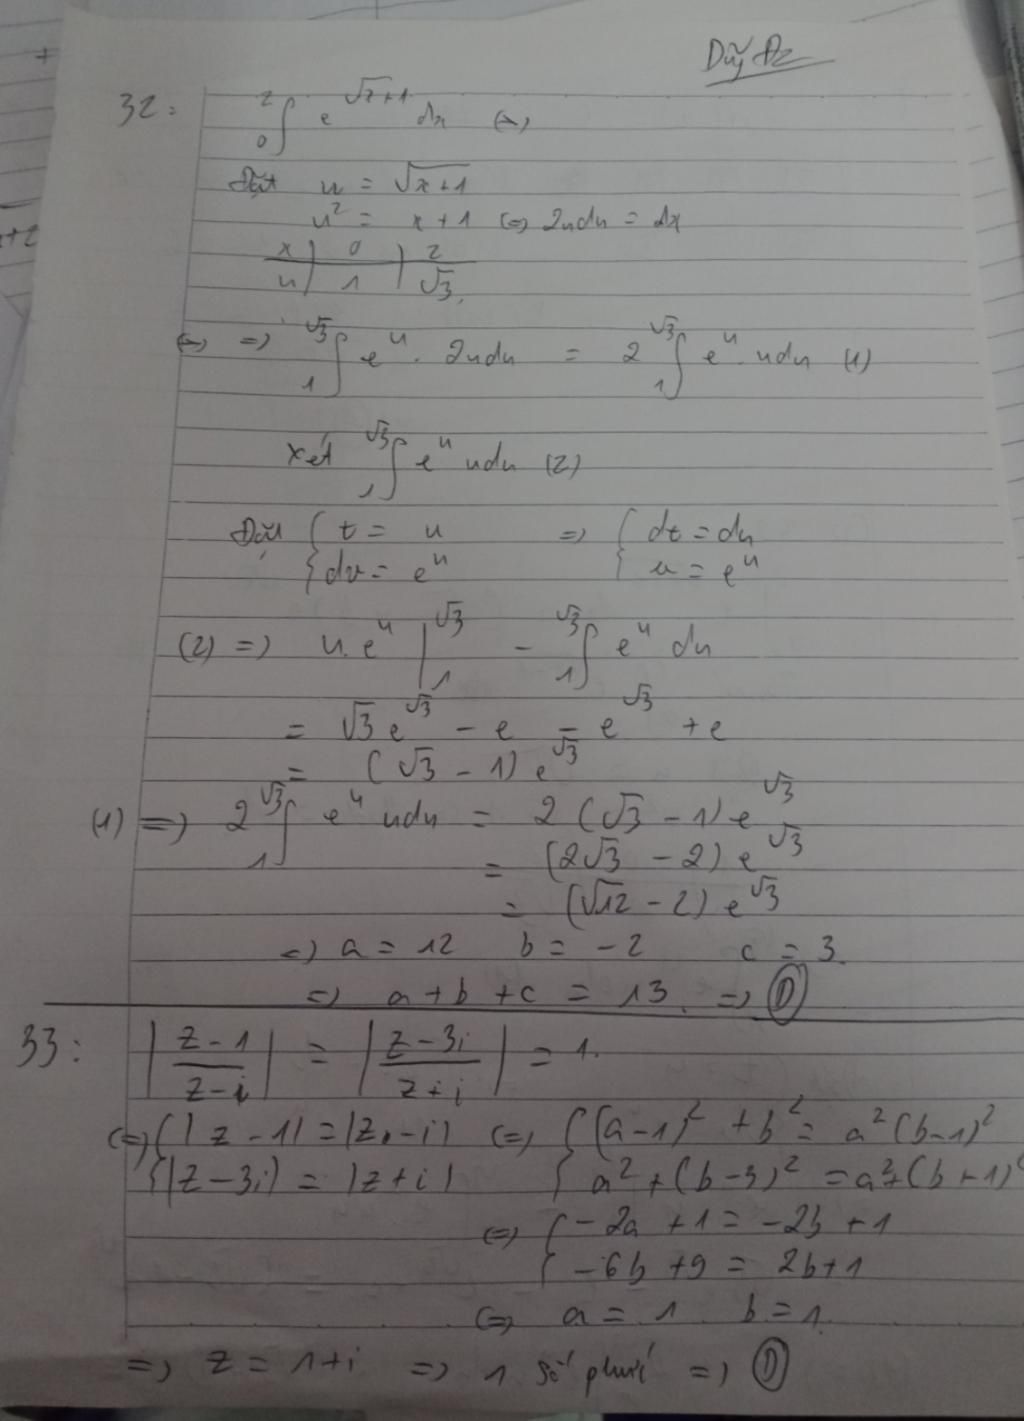 Duy Đz
32: ²∫₀ e^√(x+1) dx (*)
Đặt u = √(x+1)
u² = x+1 (=) 2udu = dx
x | 0 | 2
u | 1 | √3
(*) => ^√3∫₁ e^u. 2udu = 2 ^√3∫₁ e^u. udu (1)
xét ^√3∫₁ e^u udu (2)
Đặt { t = u => { dt = du
{ dv = e^u { u = e^u
(2) => u.e^u |₁^√3 - ^√3∫₁ e^u du
= √3 e^√3 - e - e^√3 + e
= (√3 - 1) e^√3
(1) => 2 ^√3∫₁ e^u udu = 2 (√3 - 1) e^√3
= (2√3 - 2) e^√3
= (√12 - 2) e^√3
=) a = 12 b = -2 c = 3.
=> a+b+c = 13. => D
33: |(z-1)/(z-i)| = |(z-3i)/(z+i)| = 1.
(=) { |z-1| = |z-i| (=) { (a-1)² + b² = a² (b-1)²
{ |z-3i| = |z+i| { a² + (b-3)² = a² + (b+1)²
(=) { -2a + 1 = -2b + 1
{ -6b + 9 = 2b + 1
(=) a = 1 b = 1.
=> z = 1+i => 1 số phức => D